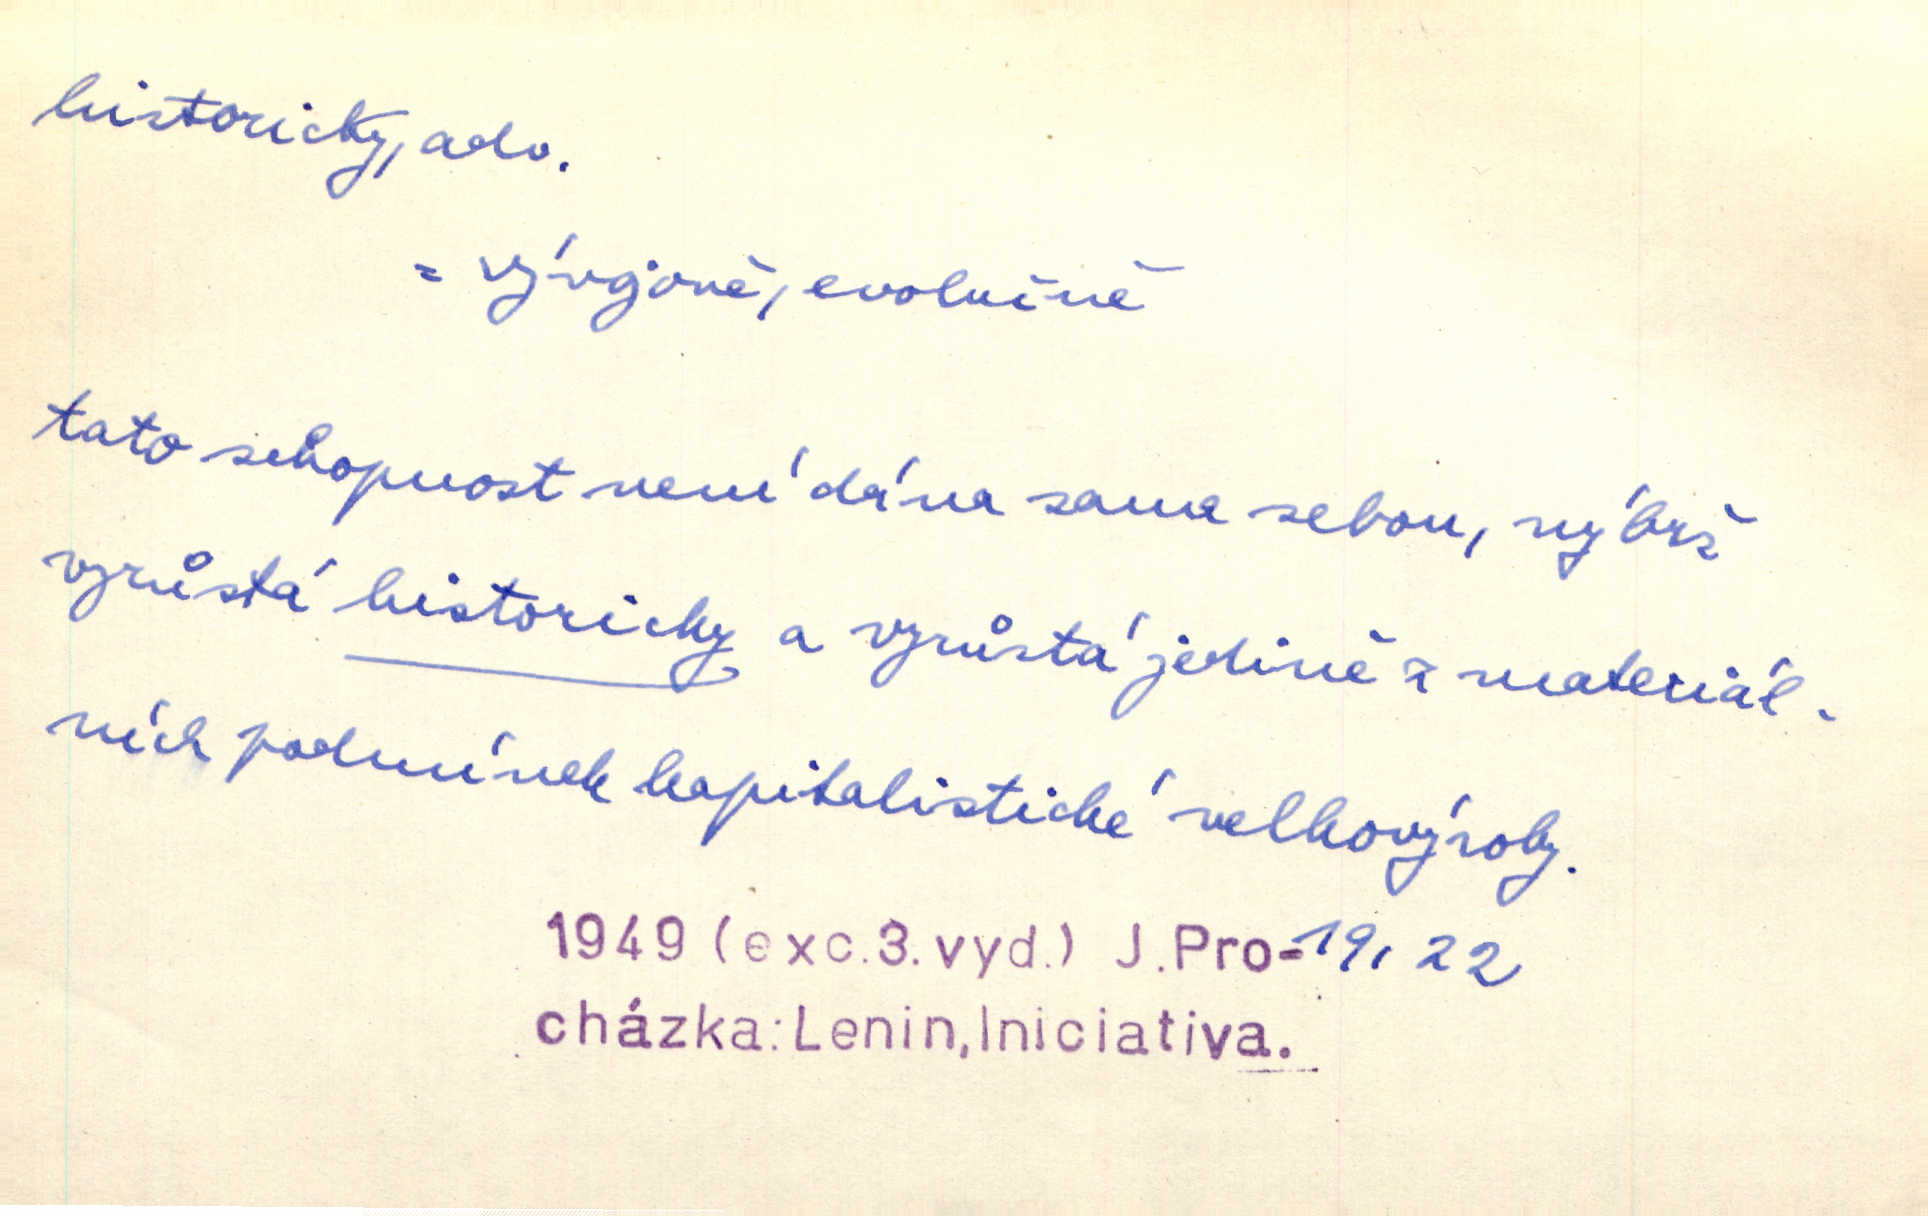 historicky, adv.
= vývojově, evolučně
tato schopnost není dána sama sebou, nýbrž
vyrůstá historicky a vyrůstá jedině z materiál-
ních podmínek kapitalistické velkovýroby.
1949 (exc.3.vyd.) J.Pro- 19, 22
cházka:Lenin,Iniciativa.